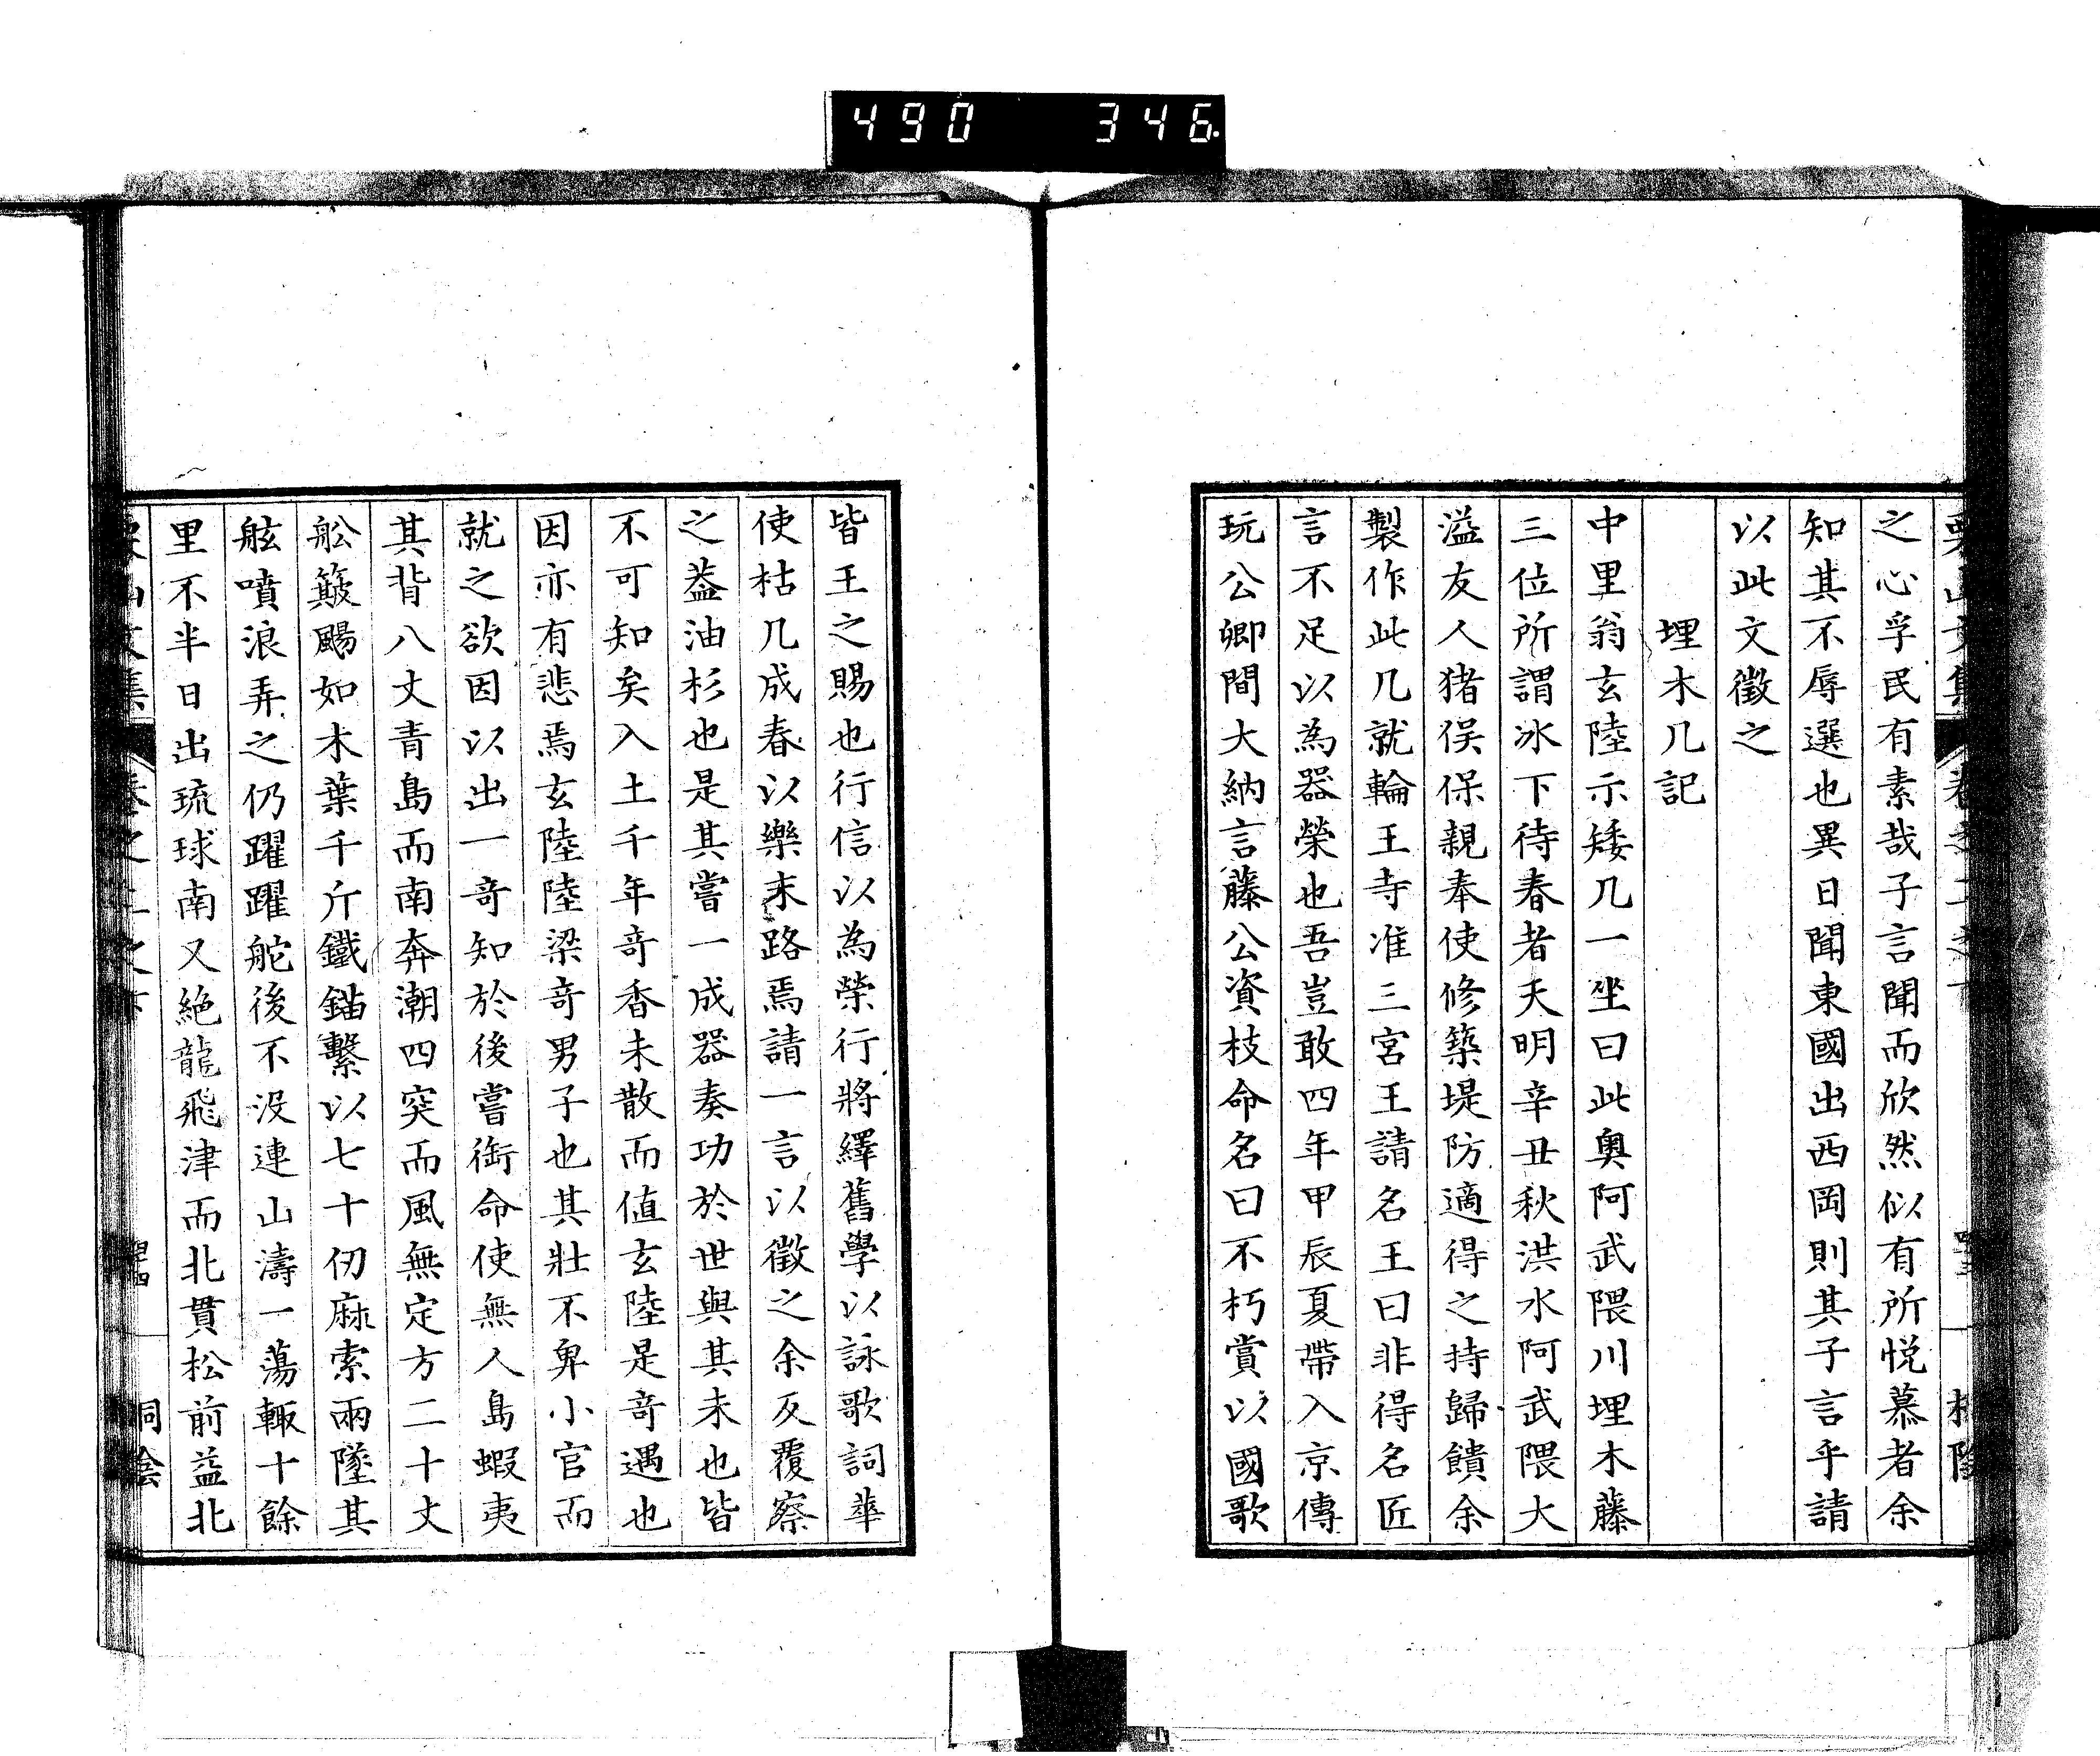 490 346
之心孚民有素哉子言聞而欣然似有所悦慕者余
知其不辱選也異日聞東國出西岡則其子言乎請
以此文徵之
埋木几記
中里翁玄陸示矮几一坐曰此奥阿武隈川埋木藤
三位所謂冰下待春者天明辛丑秋洪水阿武隈大
溢友人猪俣保親奉使修築堤防適得之持歸饋余
製作此几就輪王寺准三宮王請名王曰非得名匠
言不足以為器榮也吾豈敢四年甲辰夏帶入京傳
玩公卿間大納言藤公資枝命名曰不朽賞以國歌
皆王之賜也行信以為榮行將繹舊學以詠歌詞華
使枯几成春以樂末路焉請一言以徵之余反覆察
之蓋油杉也是其嘗一成器奏功於世與其未也皆
不可知矣入土千年竒香未散而値玄陸是竒遇也
因亦有悲焉玄陸陸梁竒男子也其壯不卑小官而
就之欲因以出一竒知於後嘗銜命使無人島蝦夷
其背八丈青島而南奔潮四突而風無定方二十丈
舩簸颺如木葉千斤鐵錨繫以七十仞麻索兩墜其
舷噴浪弄之仍躍躍舵後不没連山濤一蕩輙十餘
里不半日出琉球南又絶龍飛津而北貫松前益北